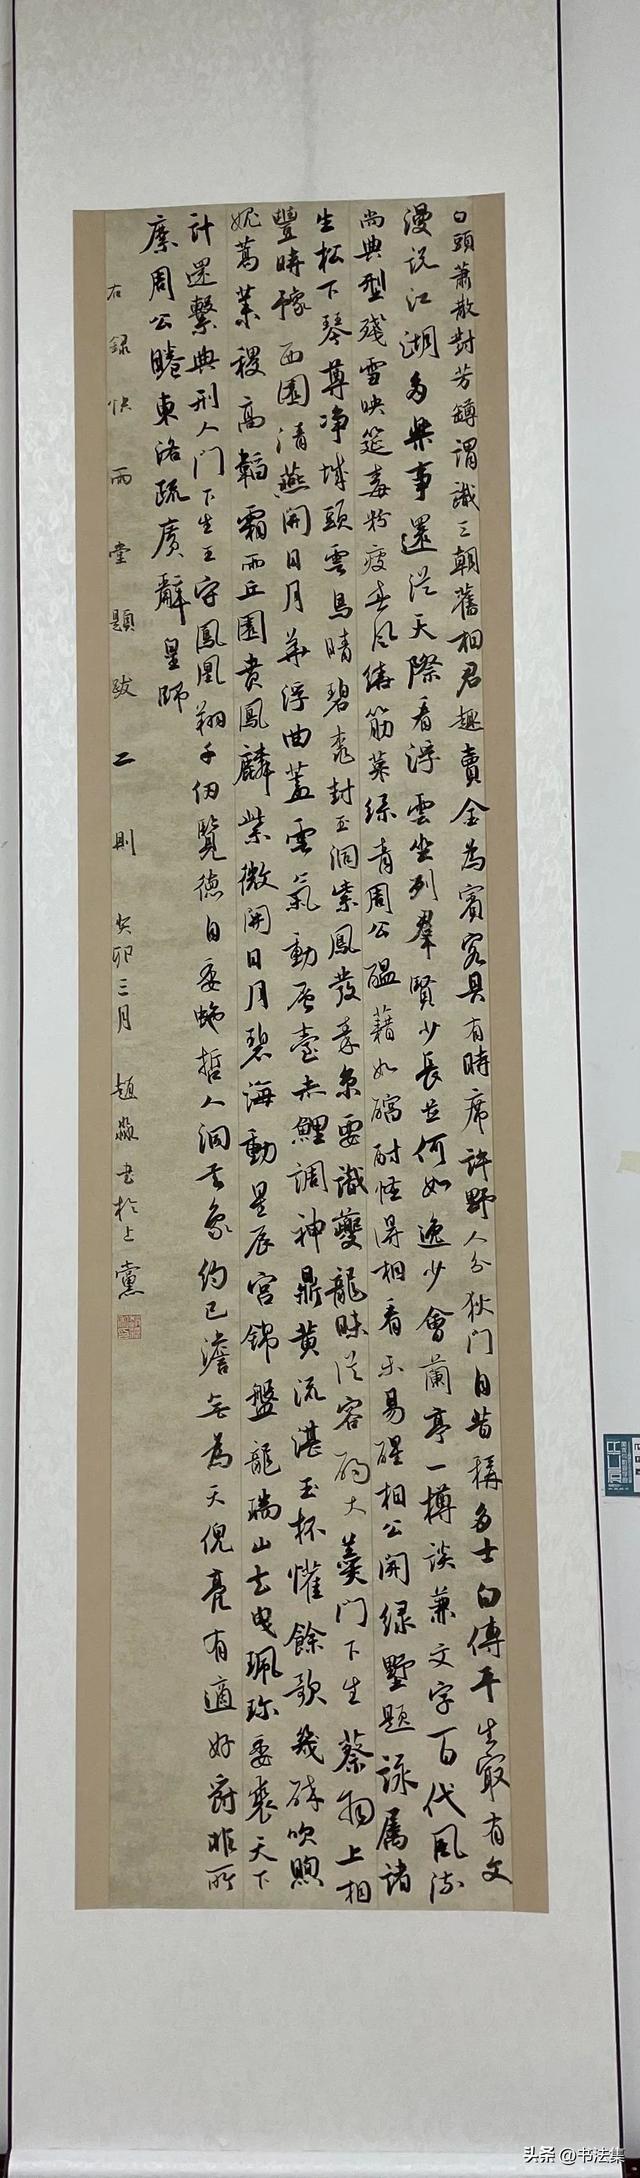 白頭蕭散對芳罇謂識三朝舊相君趣賣金為賓客具有時席許野人分狄門自昔稱多士白傅平生最有文
漫說江湖多樂事還從天際看浮雲坐列羣賢少長並何如逸少會蘭亭一樽談兼文字百代風流
尚典型殘雪映筵毒粉疲春風绕筋葉綠青周公醞藉如醹酎怪得相看不易醒相公開綠墅題詠屬諸
生松下琴尊净城頭雲鳥晴碧封玉洞紫鳳發要識夔龍味從容大羹門下生蔡抃上相
豐時豫西園清燕開日月華浮曲蓋雲氣動臺赤鯉調神鼎黄流湛玉杯懽餘歌幾吹煦
媿萬葉稷高韜霜雨丘園賁鳳麟紫微開日月碧海動星辰宮錦盤龍瑞山玄曳珮珍委裘天下
計還繫典刑人門下生王守鳳凰翔千仞覽德自委蛇哲人洞玄象約已澹無為天倪亮有適好爵非所
縻周公睠東洛疏廣辭皇師
右録快雨堂題跋二則 癸卯三月 趙書於上黨
头条 @书法集